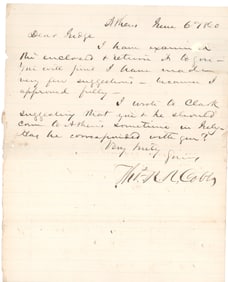 Athens June 6th 1860
Dear Judge
I have examined
the enclosed & return it to you—
You will find I have made
very few suggestions— because I
approved fully—
I wrote to Clark
suggesting that you & he should
come to Athens sometime in July.
Has he corresponded with you?
Very truly
Yours
Thos. R. R. Cobb